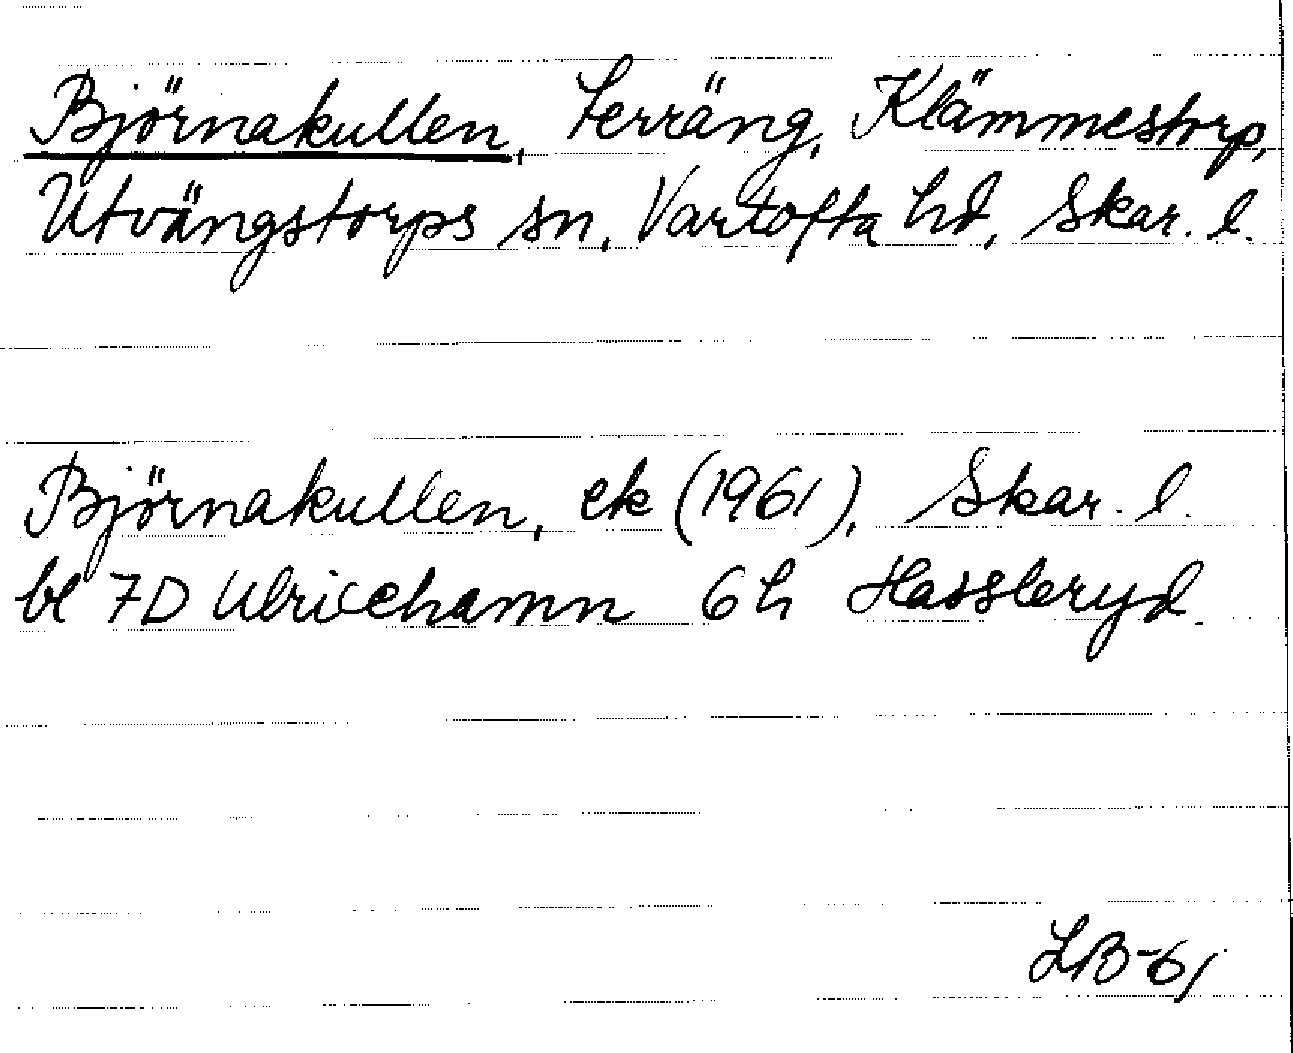 Björnakullen, terräng, Klämmestorp,
Utvängstorps sn, Vartofta hd, Skar. l.
Björnakullen, ek (1961), Skar. l.
bl 7D Ulricehamn 6h Hassleryd.
LB-61